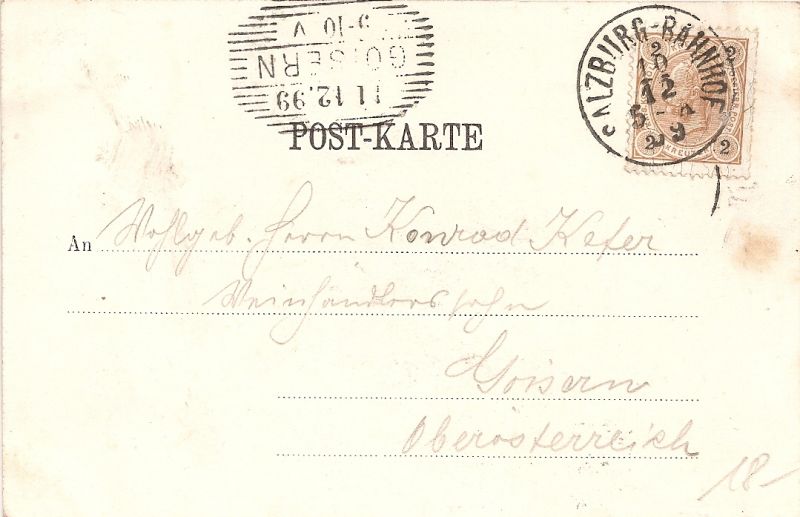 9-10 V
GOISERN
11.12.99
SALZBURG-BAHNHOF
10
12
2 2
2 2
POST-KARTE
An Wohlgeb. Herrn Konrad Kefer
Weinhändlerssohn
Goisern
Oberösterreich
18-